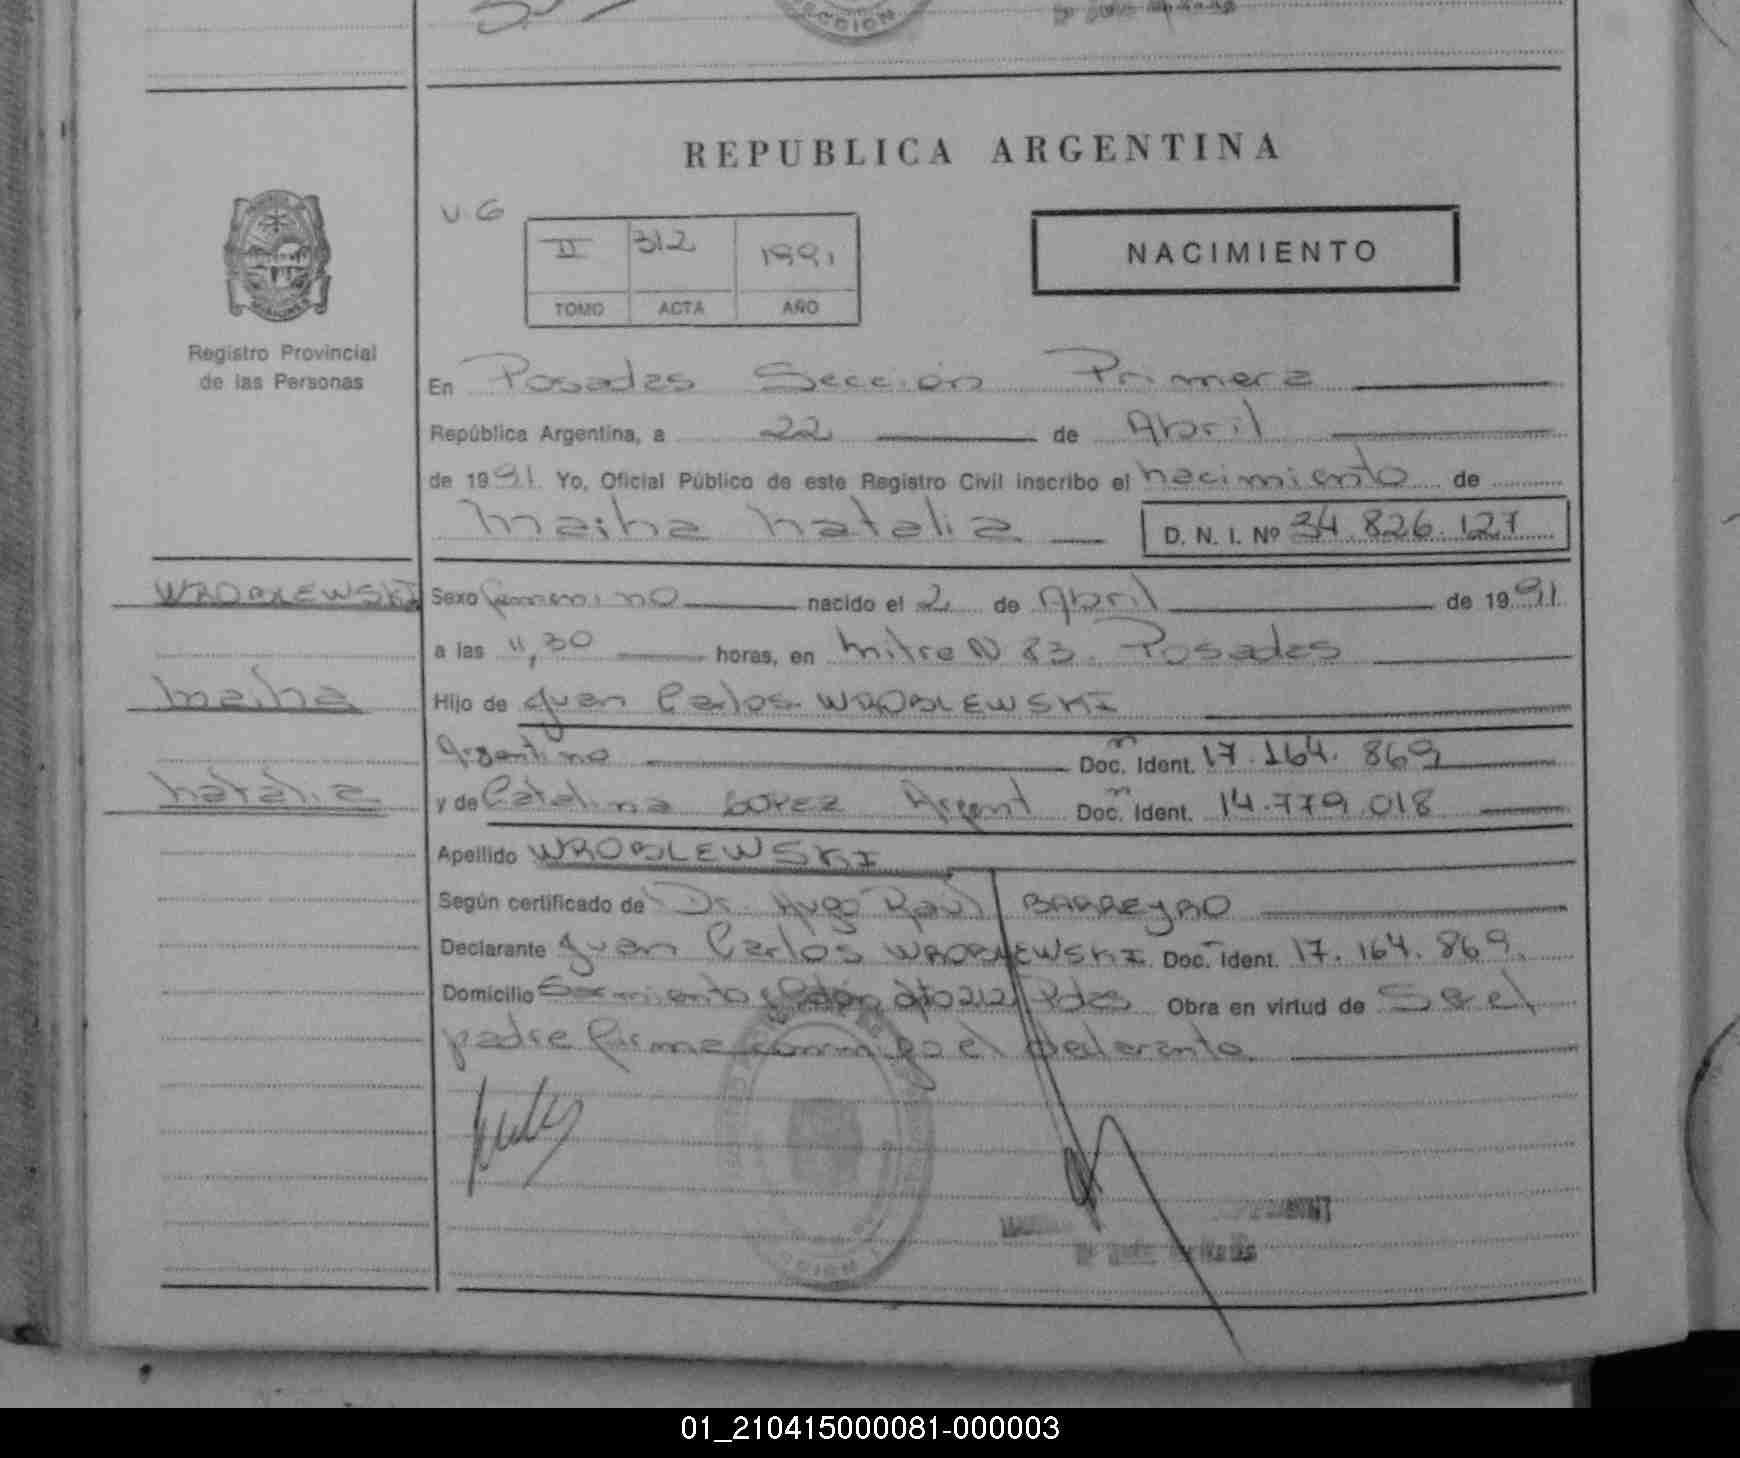 REPUBLICA ARGENTINA
V.G
II 312 1991
TOMO ACTA AÑO
NACIMIENTO
Registro Provincial
de las Personas
En Posadas Sección Primera
República Argentina, a 22 de Abril
de 1991 Yo, Oficial Público de este Registro Civil inscribo el nacimiento de
Maiha Natalia D. N. I. Nº 34.826.127
WROBLEWSKI
Maiha
Natalia
Sexo femenino nacido el 2 de Abril de 1991
a las 11,30 horas, en Mitre N 83. Posadas
Hijo de Juan Carlos WROBLEWSKI
Argentino Doc. Ident. 17.164.869
y de Catalina LOPEZ Argent Doc. Ident. 14.779.018
Apellido WROBLEWSKI
Según certificado de Dr. Hugo Raul BARREYRO
Declarante Juan Carlos WROBLEWSKI Doc. Ident. 17.164.869.
Domicilio Sarmiento y Colón dpto 212 Pdas Obra en virtud de Ser el
padre firma conmigo el declarante
01_210415000081-000003